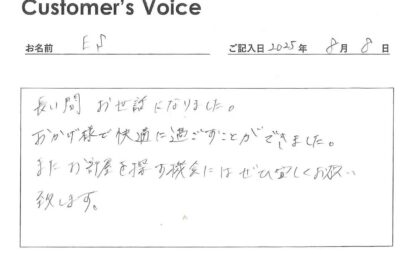 Customer's Voice
お名前 E.S ご記入日 2025 年 8 月 8 日
長い間 お世話になりました。
おかげ様で快適に過ごすことができました。
また お部屋を探す機会には ぜひ宜しくお願い
致します。